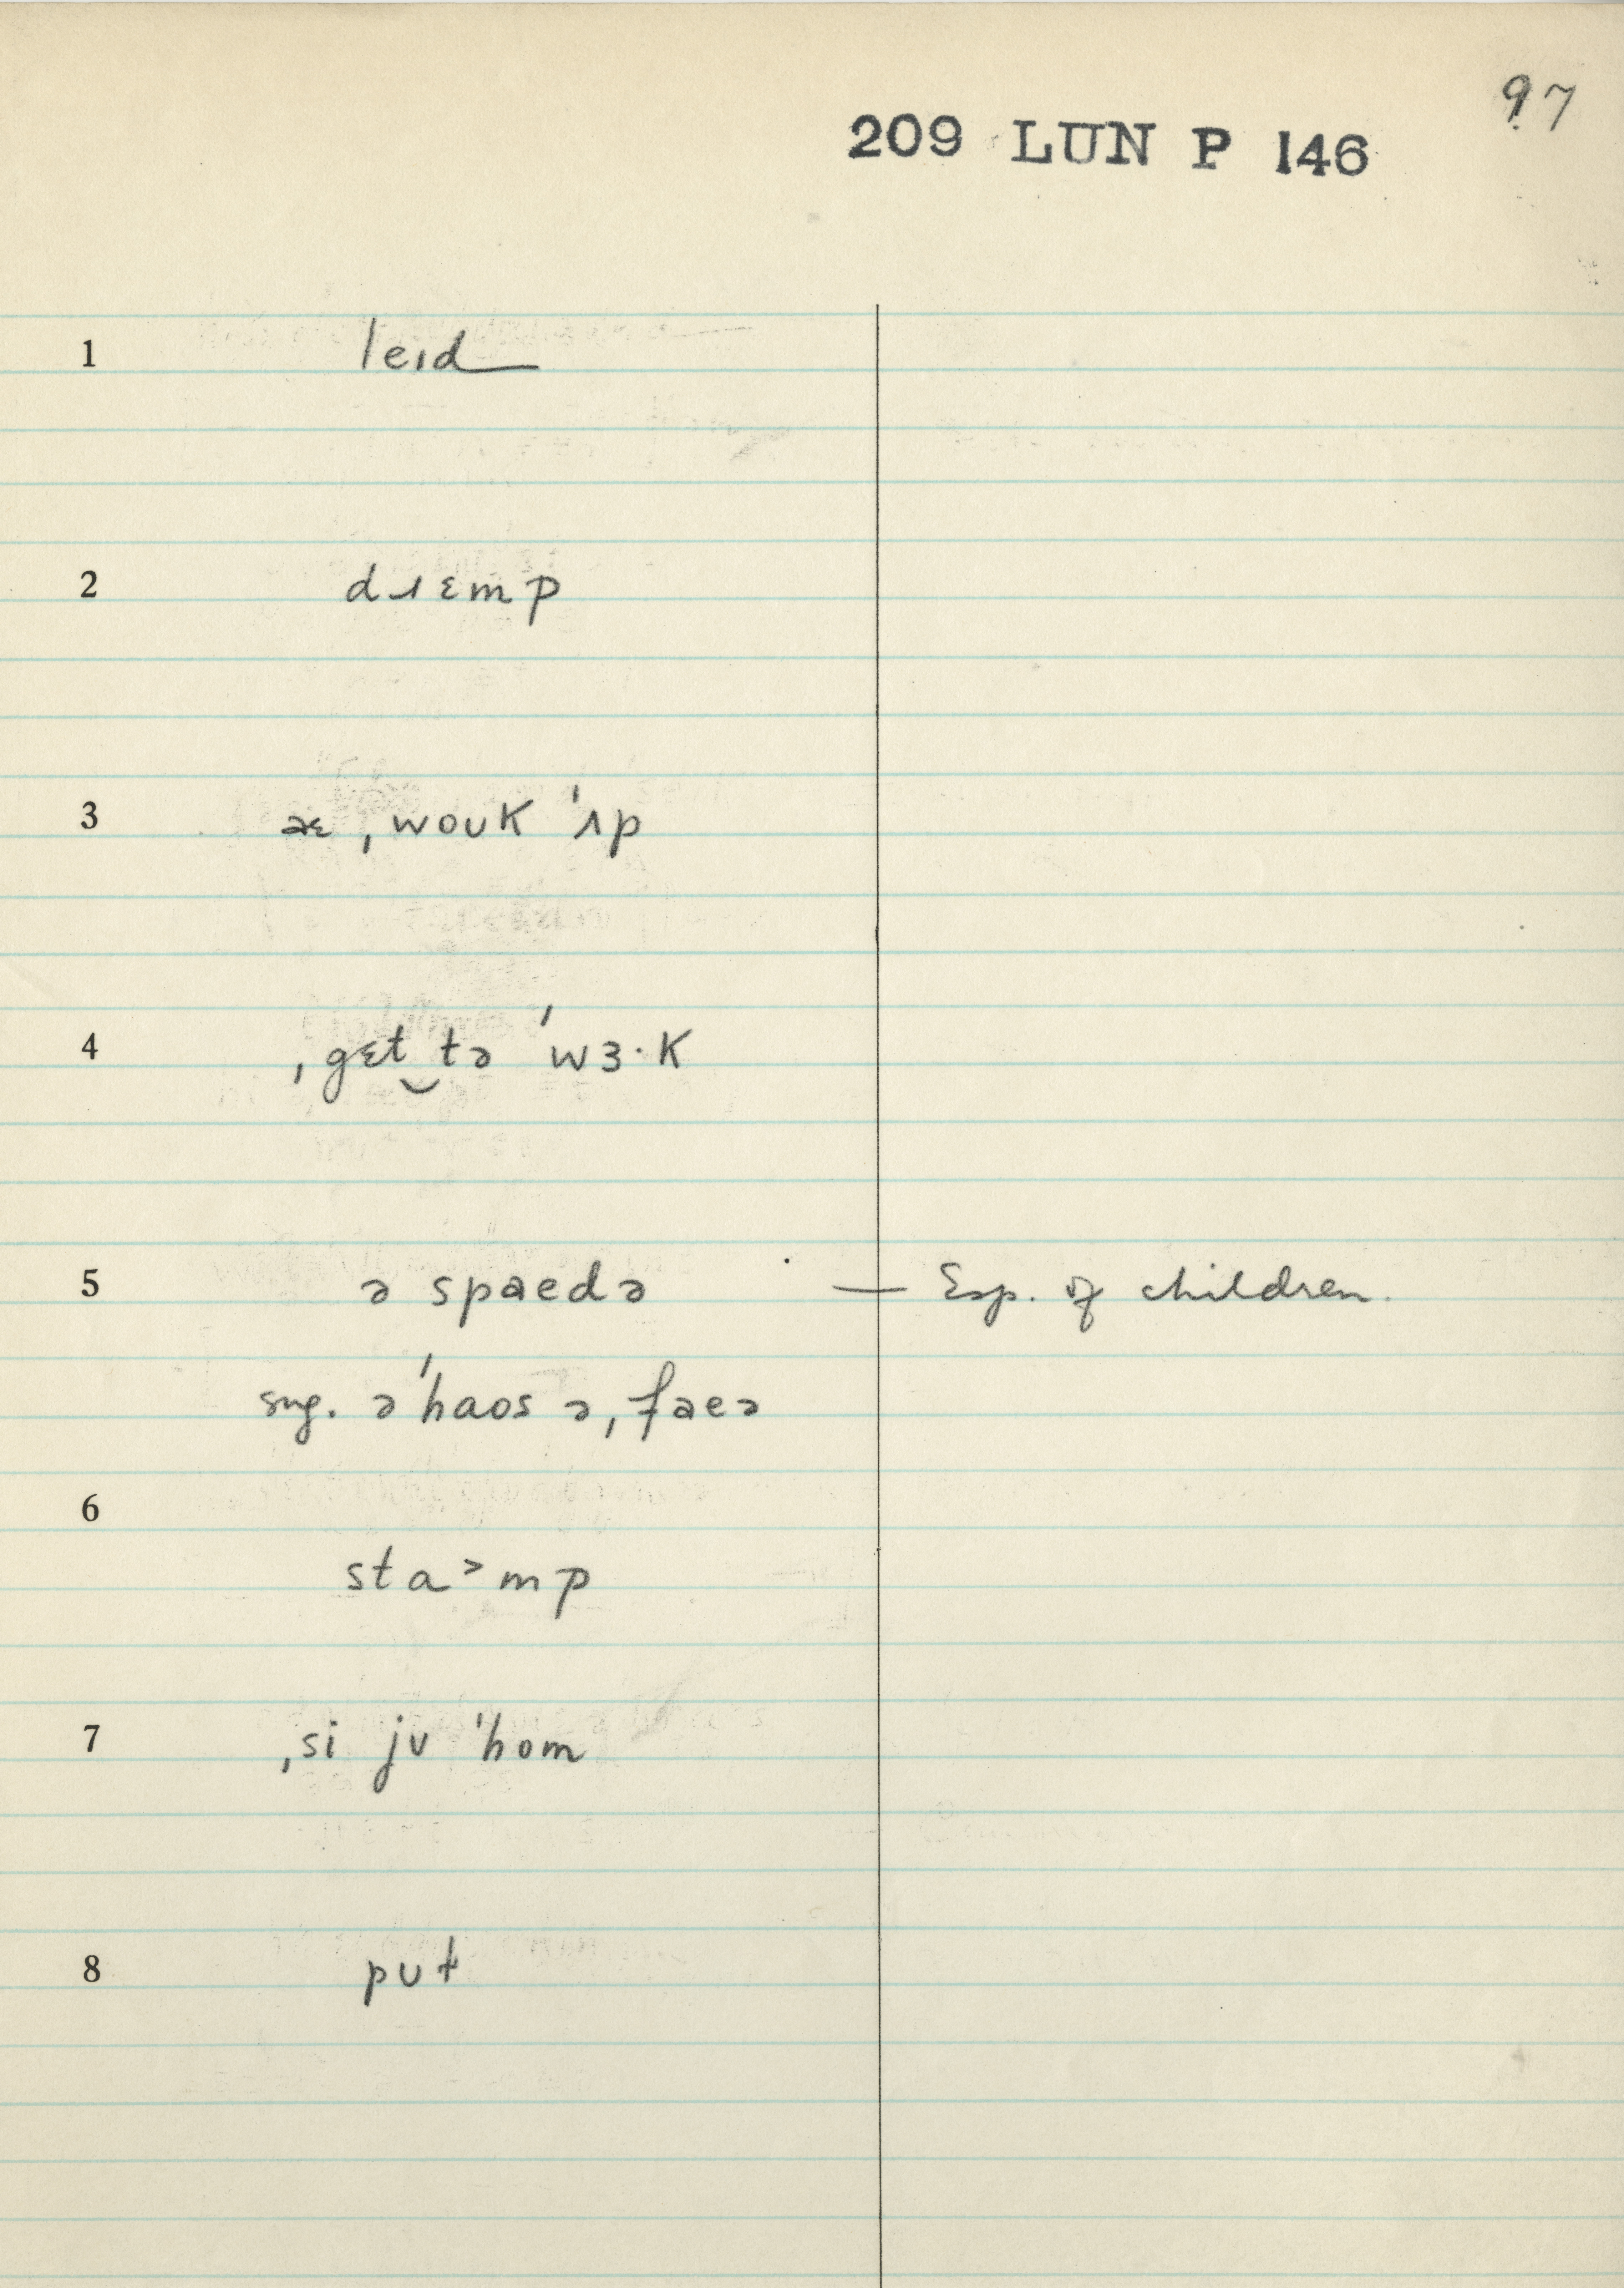 97
209 LUN P 146
1 leɪd
2 dɹɛmp
3 æ ˌwouk ˈʌp
4 ˌgɛt‿tə ˈwɜ·k
5 ə spaedə — Esp. of children.
sug. əˈhaos əˌfaeə
6
sta˃mp
7 ˌsi jʊ ˈhom
8 pʊt